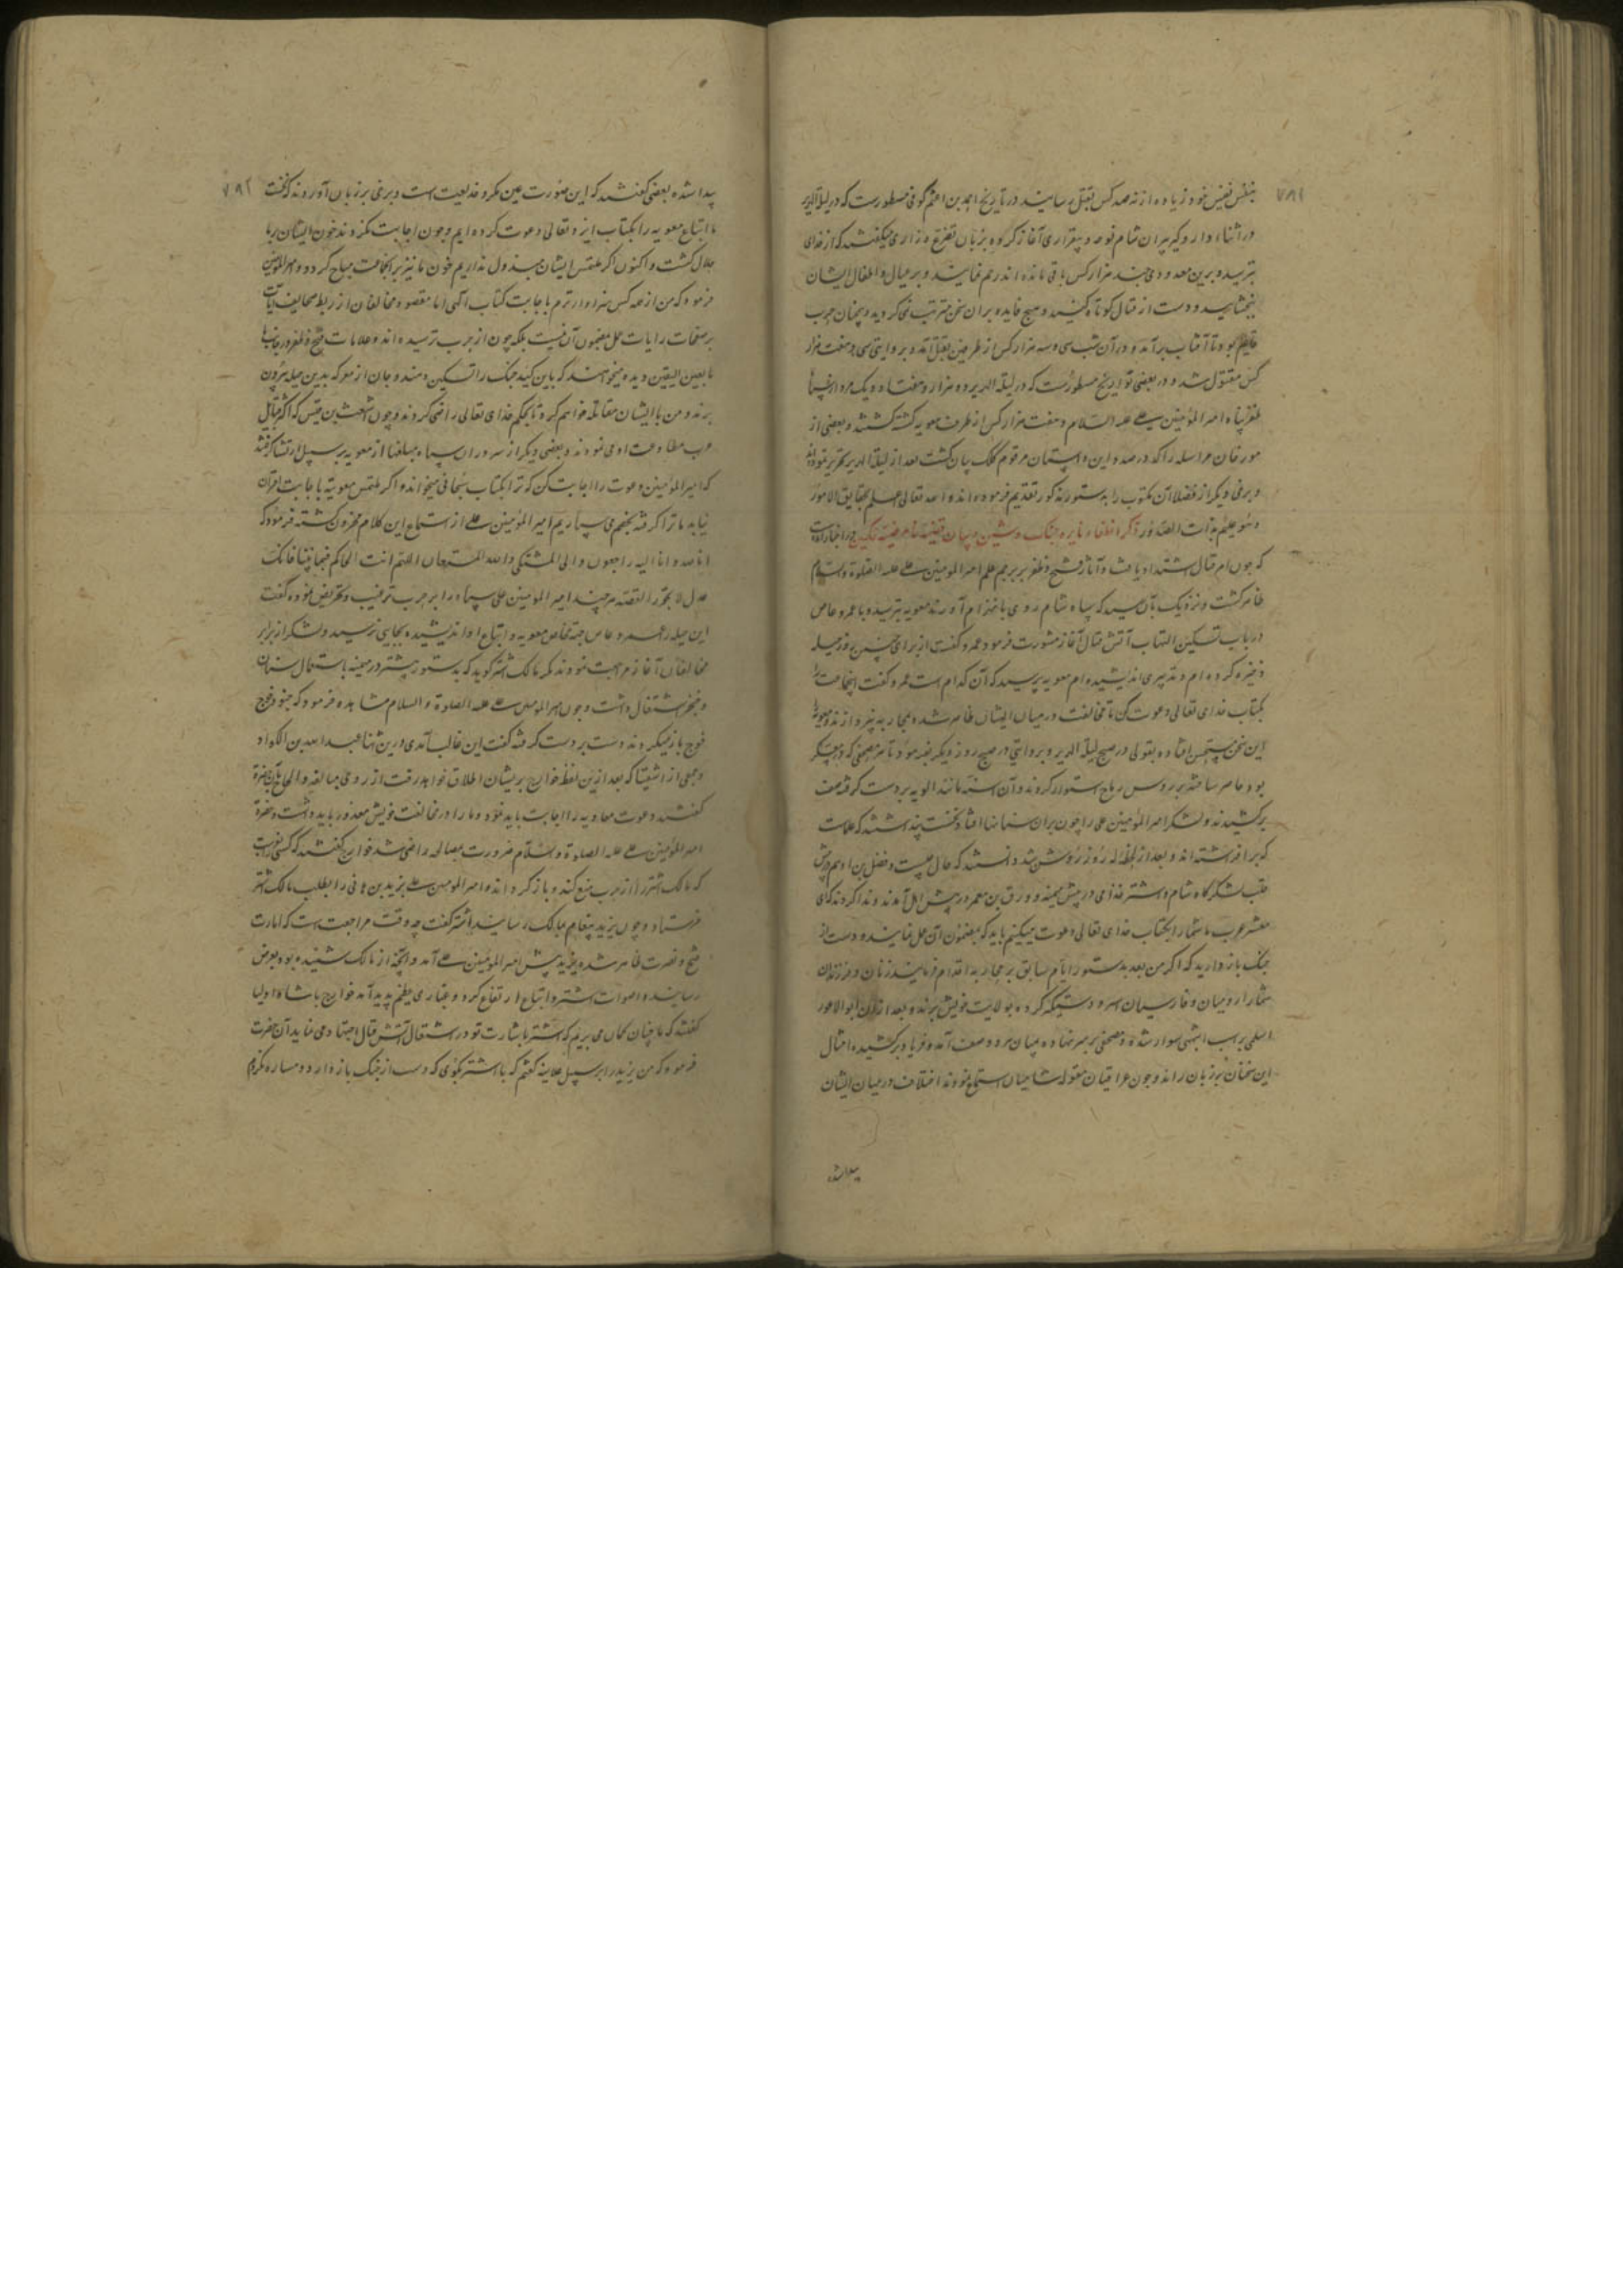 ۷۸۱
بنفس نفیس خود زیاده از نه صد کس بقتل رسانیدند در تاریخ احمد بن اعثم کوفی مسطورست که در لیلة الهریر
در اثناء دار و گیر پیران شام نوحه و بیقراری آغاز کرده بزبان تضرع و زاری میگفتند که از خدای
بترسید و برین معدودی چند هزار کس باقی مانده اند رحم نمایید و بر عیال و اطفال ایشان
ببخشایید و دست از قتال کوتاه کنید و هیچ فایده بر آن سخن مترتب نمی گردید و همچنان حرب
قایم بود تا آفتاب برآمد و در آن شب سی و سه هزار کس از طرفین بقتل آمد و بروایتی سی و هفت هزار
کس مقتول شد و در بعضی تواریخ مسطورست که در لیلة الهریر دو هزار و هفتاد و یک مرد از سپاه
ظفرپناه امیر المؤمنین علی علیه السلام و هفت هزار کس از طرف معویه کشته گشتند و بعضی از
مورخان مراسله را که در صدر این داستان مرقوم کلک بیان گشت بعد از لیلة الهریر تحریر نموده اند
و برخی دیگر از فضلا آن مکتوب را بدستور مذکور تقدیم فرموده اند و الله تعالی اعلم بحقایق الامور
وهو علیم بذات الصدور ذکر انطفاء نایره جنک و شین و بیان قضیه نامرضیه تحکیم در اخبار آمده است
که چون امر قتال اشتداد یافت و آثار فتح و ظفر بر پرچم علم امیر المؤمنین علی علیه الصلوة والسلام
ظاهر گشت و نزدیک بآن رسید که سپاه شام روی بانهزام آورند معویه بترسید و با عمرو عاص
در باب تسکین التهاب آتش قتال آغاز مشورت فرمود عمرو گفت از برای چنین روز حیله
ذخیره کرده ام و تدبیری اندیشیده ام معویه پرسید که آن کدام است عمرو گفت اینجماعت را
بکتاب خدای تعالی دعوت کن تا مخالفت در میان ایشان ظاهر شده بمحاربه نپردازند و معویه را
این سخن مستحسن افتاده بقولی در صبح لیلة الهریر و بروایتی در صبح روز دیگر بفرمود تا هر مصحفی که در لشکر
بود حاضر ساخته بر روس رماح استوار کردند و آن اسنه مانند الویه بر دست گرفته صف
برکشیدند و لشکر امیر المؤمنین علی را چون بر آن سنانها افتاد نخست پنداشتند که علامت
که برافراشته اند و بعد از لحظه که روز روشن شد دانستند که حال چیست و فضل بن ادهم در پیش
قلب لشکرگاه شام و شتر غذامی در پیش میمنه و ورق بن معمر در پیش اهل آمدند و ندا کردند که ای
معشر عرب ما شما را بکتاب خدای تعالی دعوت میکنیم باید که بمضمون آن عمل نمایید و دست از
جنک باز دارید که اگر من بعد بدستور ایام سابق بر محاربه اقدام نمایید زنان و فرزندان
شما را رومیان و فارسیان اسیر و دستگیر کرده بولایت خویش برند و بعد از آن ابو الاعور
اسلمی بر اسب اشهبی سوار شده و مصحفی بر سر نهاده میان هر دو صف آمد و فریاد برکشیده امثال
این سخنان بر زبان راند و چون عراقیان مقوله شامیان استماع نمودند اختلاف در میان ایشان
پیدا شده
۷۸۲
پیدا شده بعضی گفتند که این صورت عین مکر و خدیعت است و برخی بر زبان آوردند که نخست
ما اتباع معویه را بکتاب ایزد تعالی دعوت کرده ایم و چون اجابت نکردند خون ایشان بر ما
حلال گشت و اکنون اگر ملتمس ایشان مبذول نداریم خون ما نیز بر آنجماعت مباح گردد و امیر المؤمنین
فرمود که من از همه کس سزاوارترم باجابت کتاب الهی اما مقصود مخالفان از ربط مصاحف
بر صفحات رایات عمل بمضمون آن نیست بلکه چون از حرب ترسیده اند و علامات فتح و ظفر در جانب ما
بعین الیقین دیده میخواهند که باین کید جنک را تسکین دهند و جان از معرکه بدین حیله بیرون
برند و من با ایشان مقاتله خواهم کرد تا بحکم خدای تعالی راضی گردند و چون اشعث بن قیس که اکثر قبایل
عرب مطاوعت او می نمودند و بعضی دیگر از سروران سپاه مبلغها از معویه بر سبیل ارتشا گرفته
که امیر المؤمنین دعوت را اجابت کن که ترا بکتاب سبحانی میخواند و اگر ملتمس معویه باجابت اقتران
نیابد ما ترا گرفته بخصم می سپاریم امیر المؤمنین علی از استماع این کلام محزون گشته فرمود که
انا لله و انا الیه راجعون و الی الله المشتکی و الله المستعان اللهم انت الحاکم فیما بیننا فانک
عدل لا تجور القصه هر چند امیر المؤمنین علی سپاه را بر حرب ترغیب و تحریض نموده گفت
این حیله را عمرو عاص جهة تخلص معویه و اتباع او اندیشیده بجایی نرسید و لشکر از برابر
مخالفان آغاز مراجعت نمودند مگر مالک اشتر گوید که بدستور پیشتر در میمنه باستعمال سنان
و خنجر اشتغال داشت و چون امیر المؤمنین علی علیه الصلوة والسلام مشاهده فرمود که جنود فوج
فوج باز میگردند دست بر دست گرفته گفت ابن غالب آمدی درین اثنا عبد الله بن الکوا و
جمعی از اشقیا که بعد ازین لفظ خوارج بریشان اطلاق خواهد رفت از روی مبالغه و الحاح بآن حضرة
گفتند دعوت معاویه را اجابت باید نمود و ما را در مخالفت خویش معذور باید داشت و حضرة
امیر المؤمنین علی علیه الصلوة والسلام ضرورت بمصالحه راضی شد خوارج گفتند که کسی باید فرستاد
که مالک اشتر را از حرب منع کند و باز گرداند امیر المؤمنین علی یزید بن هانی را بطلب مالک اشتر
فرستاد و چون یزید پیغام بمالک رسانید اشتر گفت چه وقت مراجعت است که امارت
فتح و نصرت ظاهر شده یزید پیش امیر المؤمنین علی آمد و آنچه از مالک شنیده بود بعرض
رسانیده اصوات اشتر و اتباع ارتفاع کرد و غباری عظیم پدید آمد خوارج با شاه اولیا
گفتند که ما چنان گمان می بریم که اشتر باشارت تو در اشتعال آتش قتال اجتهاد می نماید آن حضرت
فرمود که من یزید را بر سبیل علانیه گفتم که با اشتر بگوی که دست از جنک باز دارد و مساره نکردم